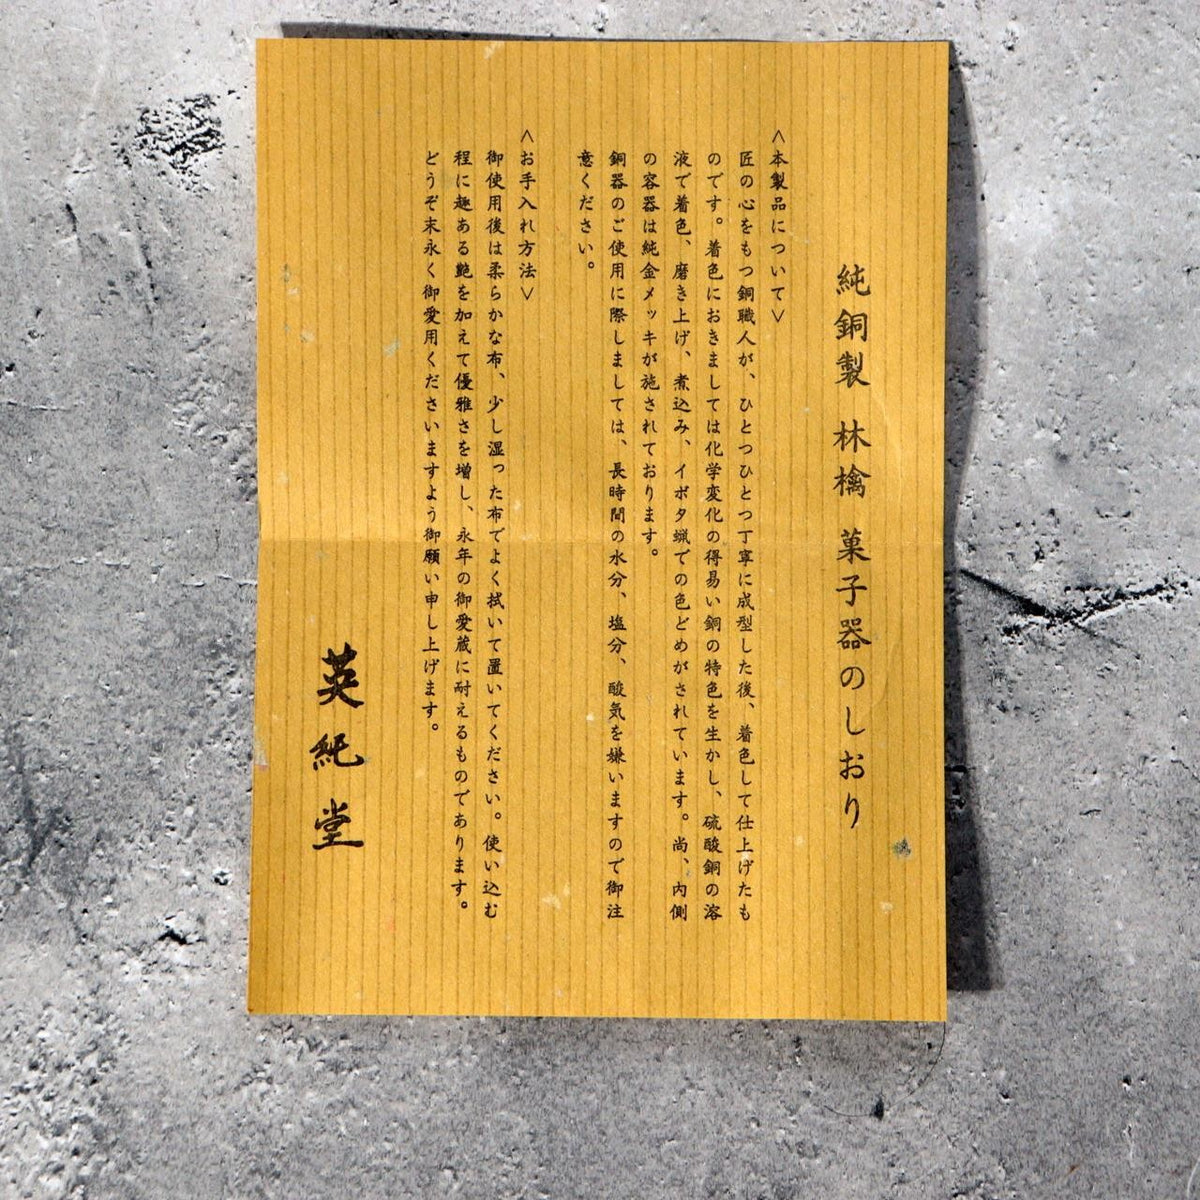 純銅製 林檎 菓子器のしおり
<本製品について>
匠の心をもつ銅職人が、ひとつひとつ丁寧に成型した後、着色して仕上げたも
のです。着色におきましては化学変化の得易い銅の特色を生かし、硫酸銅の溶
液で着色、磨き上げ、煮込み、イボタ蝋での色どめがされています。尚、内側
の容器は純金メッキが施されております。
銅器のご使用に際しましては、長時間の水分、塩分、酸気を嫌いますので御注
意ください。
<お手入れ方法>
御使用後は柔らかな布、少し湿った布でよく拭いて置いてください。使い込む
程に趣ある艶を加えて優雅さを増し、永年の御愛蔵に耐えるものであります。
どうぞ末永く御愛用くださいますよう御願い申し上げます。
英純堂